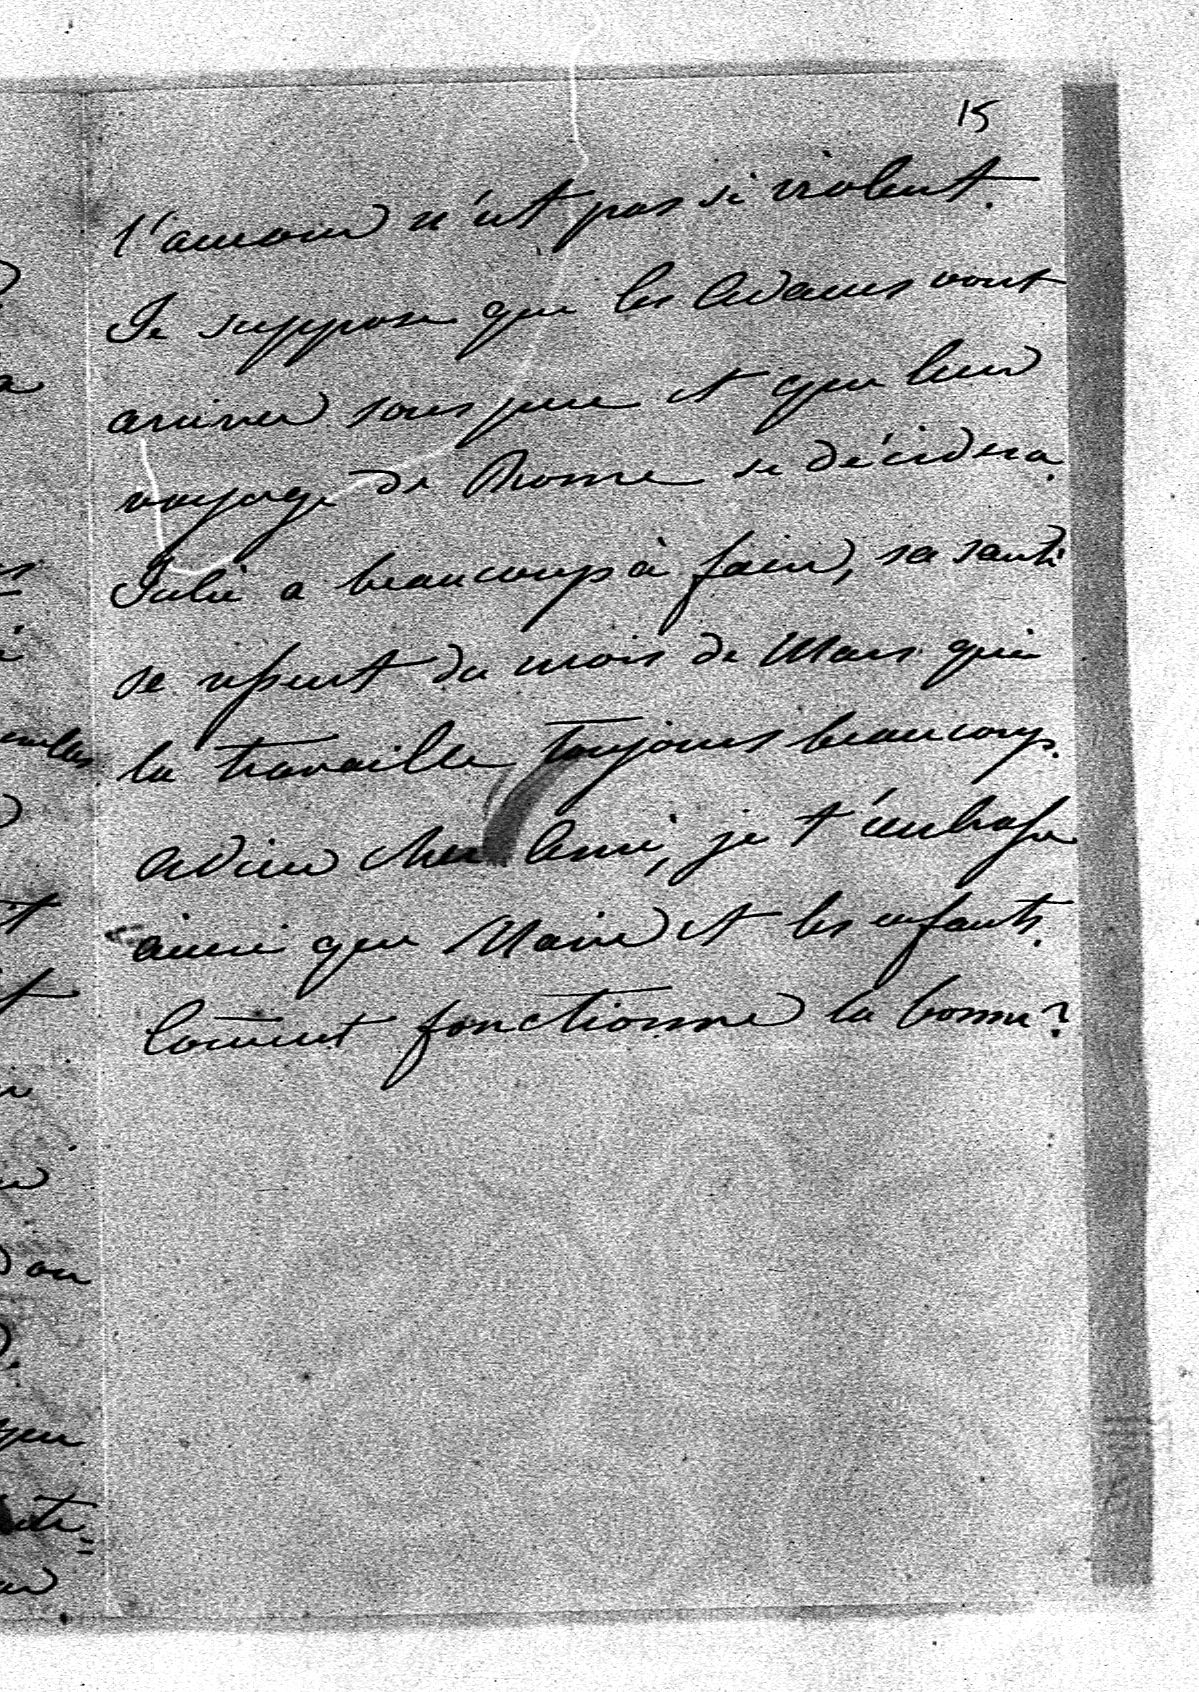 15
l'amour n'est pas si violent.
Je suppose que les Adams vont
arriver sous peu et que leur
voyage de Rome se décidera.
Julie a beaucoup à faire, sa santé
se ressent du mois de Mars qui
la travaille toujours beaucoup.
Adieu cher Ami, je t'embrasse
ainsi que Marie et les enfants.
Com̄ent fonctionne la bonne?